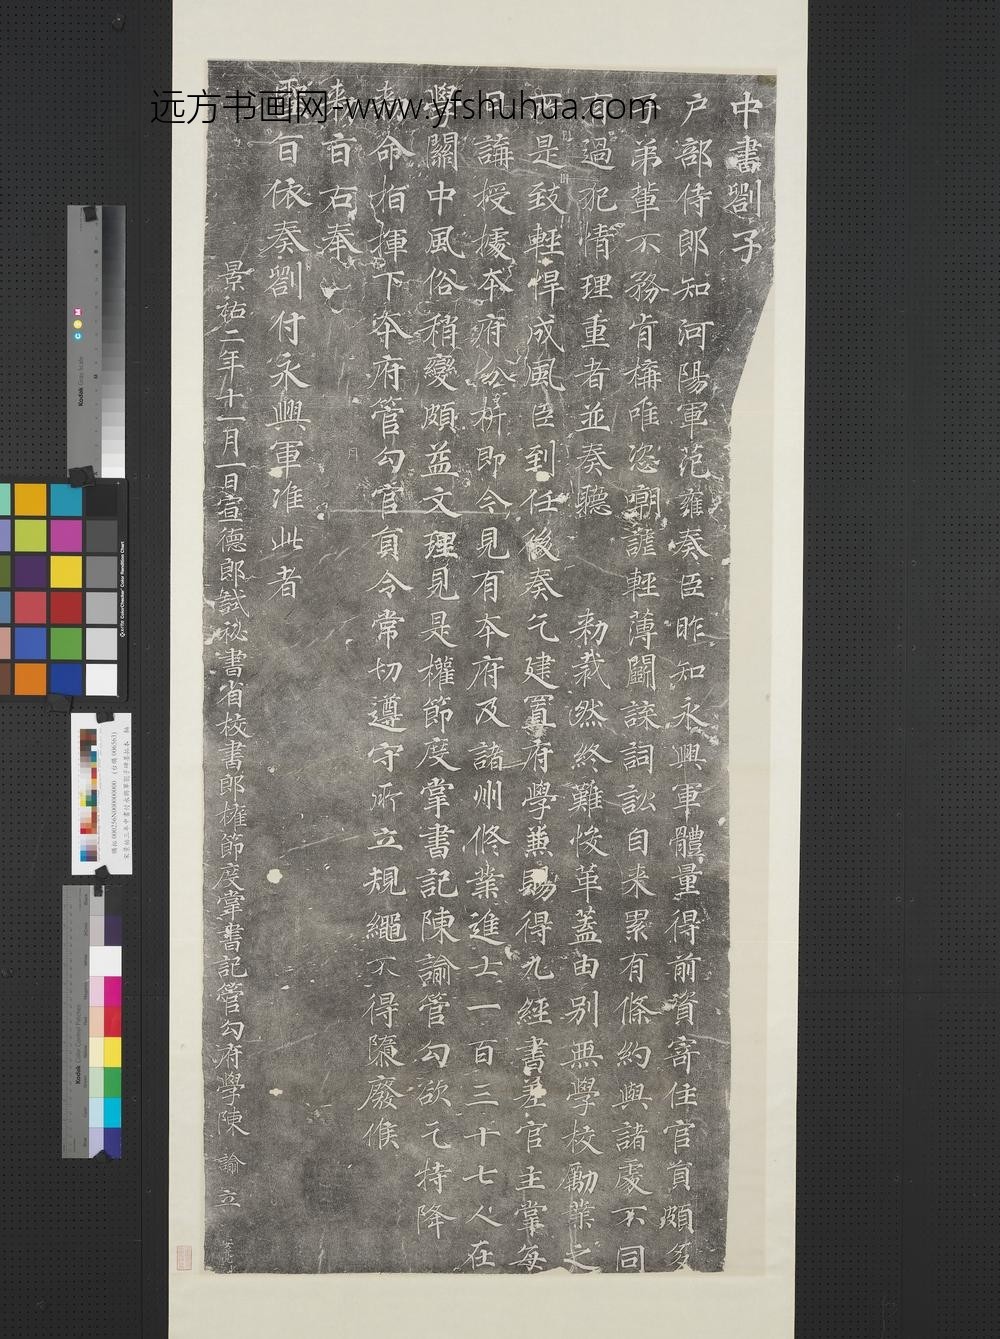 中書劄子
户部侍郎知河陽軍范雍奏臣昨知永興軍體量得前資寄住官員頗多
子弟軰不務肯構唯恣嘲謔輕薄鬪諫詞訟自来累有條約與諸處不同
有過犯情理重者並奏聽 勑裁然終難悛革蓋由别無學校勵業之
所是致輕悍成風臣到任後奏乞建置府學兼賜得九經書差官主掌每
日講授據本府分析即今見有本府及諸州修業進士一百三十七人在
學關中風俗稍變頗益文理見是權節度掌書記陳諭管勾欲乞特降
指揮下本府管勾官員令常切遵守所立規繩不得隳廢候
旨右奉
聖旨依奏劄付永興軍准此者
景祐二年十一月一日宣德郎試祕書省校書郎權節度掌書記管勾府學陳諭立
远方书画网-www.yfshuhua.com
Kodak Gray Scale
ColorChecker Color Rendition Chart
Kodak Color Control Patches